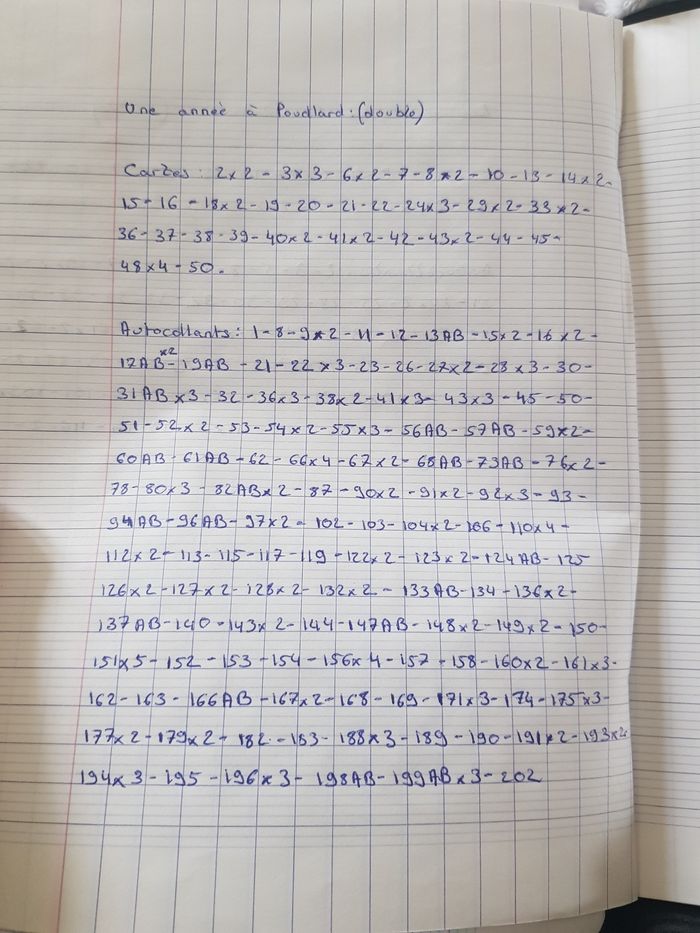 Une année à Poudlard : (double)
Cartes : 2x2 - 3x3 - 6x2 - 7 - 8x2 - 10 - 13 - 14x2 -
15 - 16 - 18x2 - 19 - 20 - 21 - 22 - 24x3 - 29x2 - 33x2 -
36 - 37 - 38 - 39 - 40x2 - 41x2 - 42 - 43x2 - 44 - 45 -
48x4 - 50.
Autocollants : 1 - 8 - 9x2 - 11 - 12 - 13AB - 15x2 - 16x2 -
17AB x2 - 19AB - 21 - 22x3 - 23 - 26 - 27x2 - 28x3 - 30 -
31ABx3 - 32 - 36x3 - 38x2 - 41x3 - 43x3 - 45 - 50 -
51 - 52x2 - 53 - 54x2 - 55x3 - 56AB - 57AB - 59x2 -
60AB - 61AB - 62 - 66x4 - 67x2 - 68AB - 73AB - 76x2 -
78 - 80x3 - 82ABx2 - 87 - 90x2 - 91x2 - 92x3 - 93 -
94AB - 96AB - 97x2 - 102 - 103 - 104x2 - 106 - 110x4 -
112x2 - 113 - 115 - 117 - 119 - 122x2 - 123x2 - 124AB - 125
126x2 - 127x2 - 128x2 - 132x2 - 133AB - 134 - 136x2 -
137AB - 140 - 143x2 - 144 - 147AB - 148x2 - 149x2 - 150 -
151x5 - 152 - 153 - 154 - 156x4 - 157 - 158 - 160x2 - 161x3 -
162 - 163 - 166AB - 167x2 - 168 - 169 - 171x3 - 174 - 175x3 -
177x2 - 179x2 - 182 - 183 - 188x3 - 189 - 190 - 191x2 - 193x2
194x3 - 195 - 196x3 - 198AB - 199ABx3 - 202